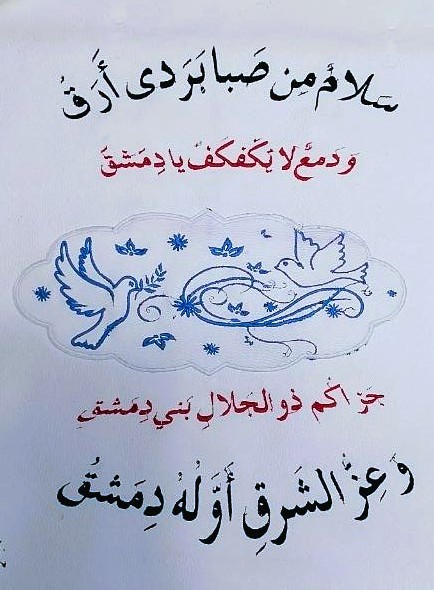 سَلامٌ مِن صَبا بَرَدى أَرَقُّ
وَدَمعٌ لا يُكَفكَفُ يا دِمَشقُ
جَزاكُم ذو الجَلالِ بَني دِمَشقٍ
وَعِزُّ الشَرقِ أَوَّلُهُ دِمَشقُ